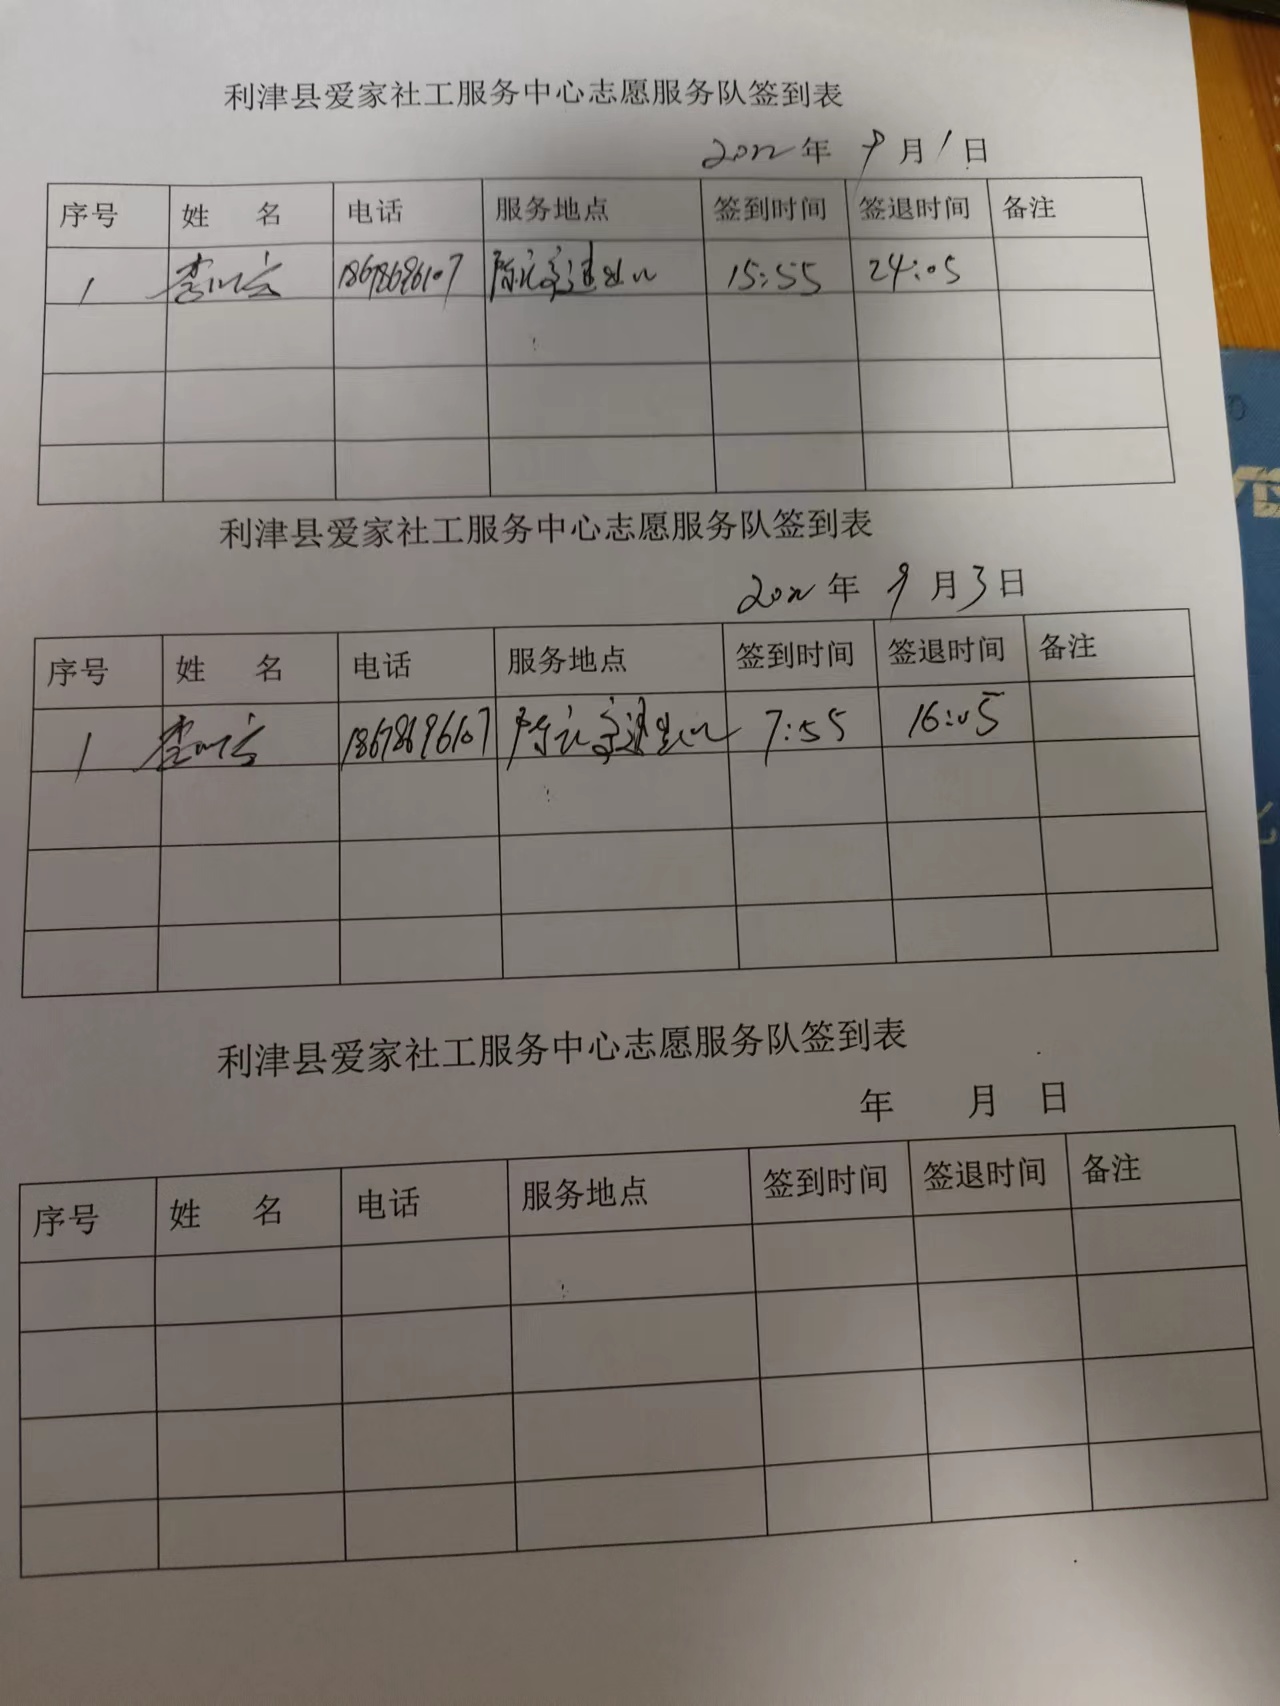 利津县爱家社工服务中心志愿服务队签到表
2022年 9月1日
序号 姓 名 电话 服务地点 签到时间 签退时间 备注
1 李 18678696107 15:55 24:05
利津县爱家社工服务中心志愿服务队签到表
2022年 9月3日
序号 姓 名 电话 服务地点 签到时间 签退时间 备注
1 李 18678696107 7:55 16:05
利津县爱家社工服务中心志愿服务队签到表
年 月 日
序号 姓 名 电话 服务地点 签到时间 签退时间 备注